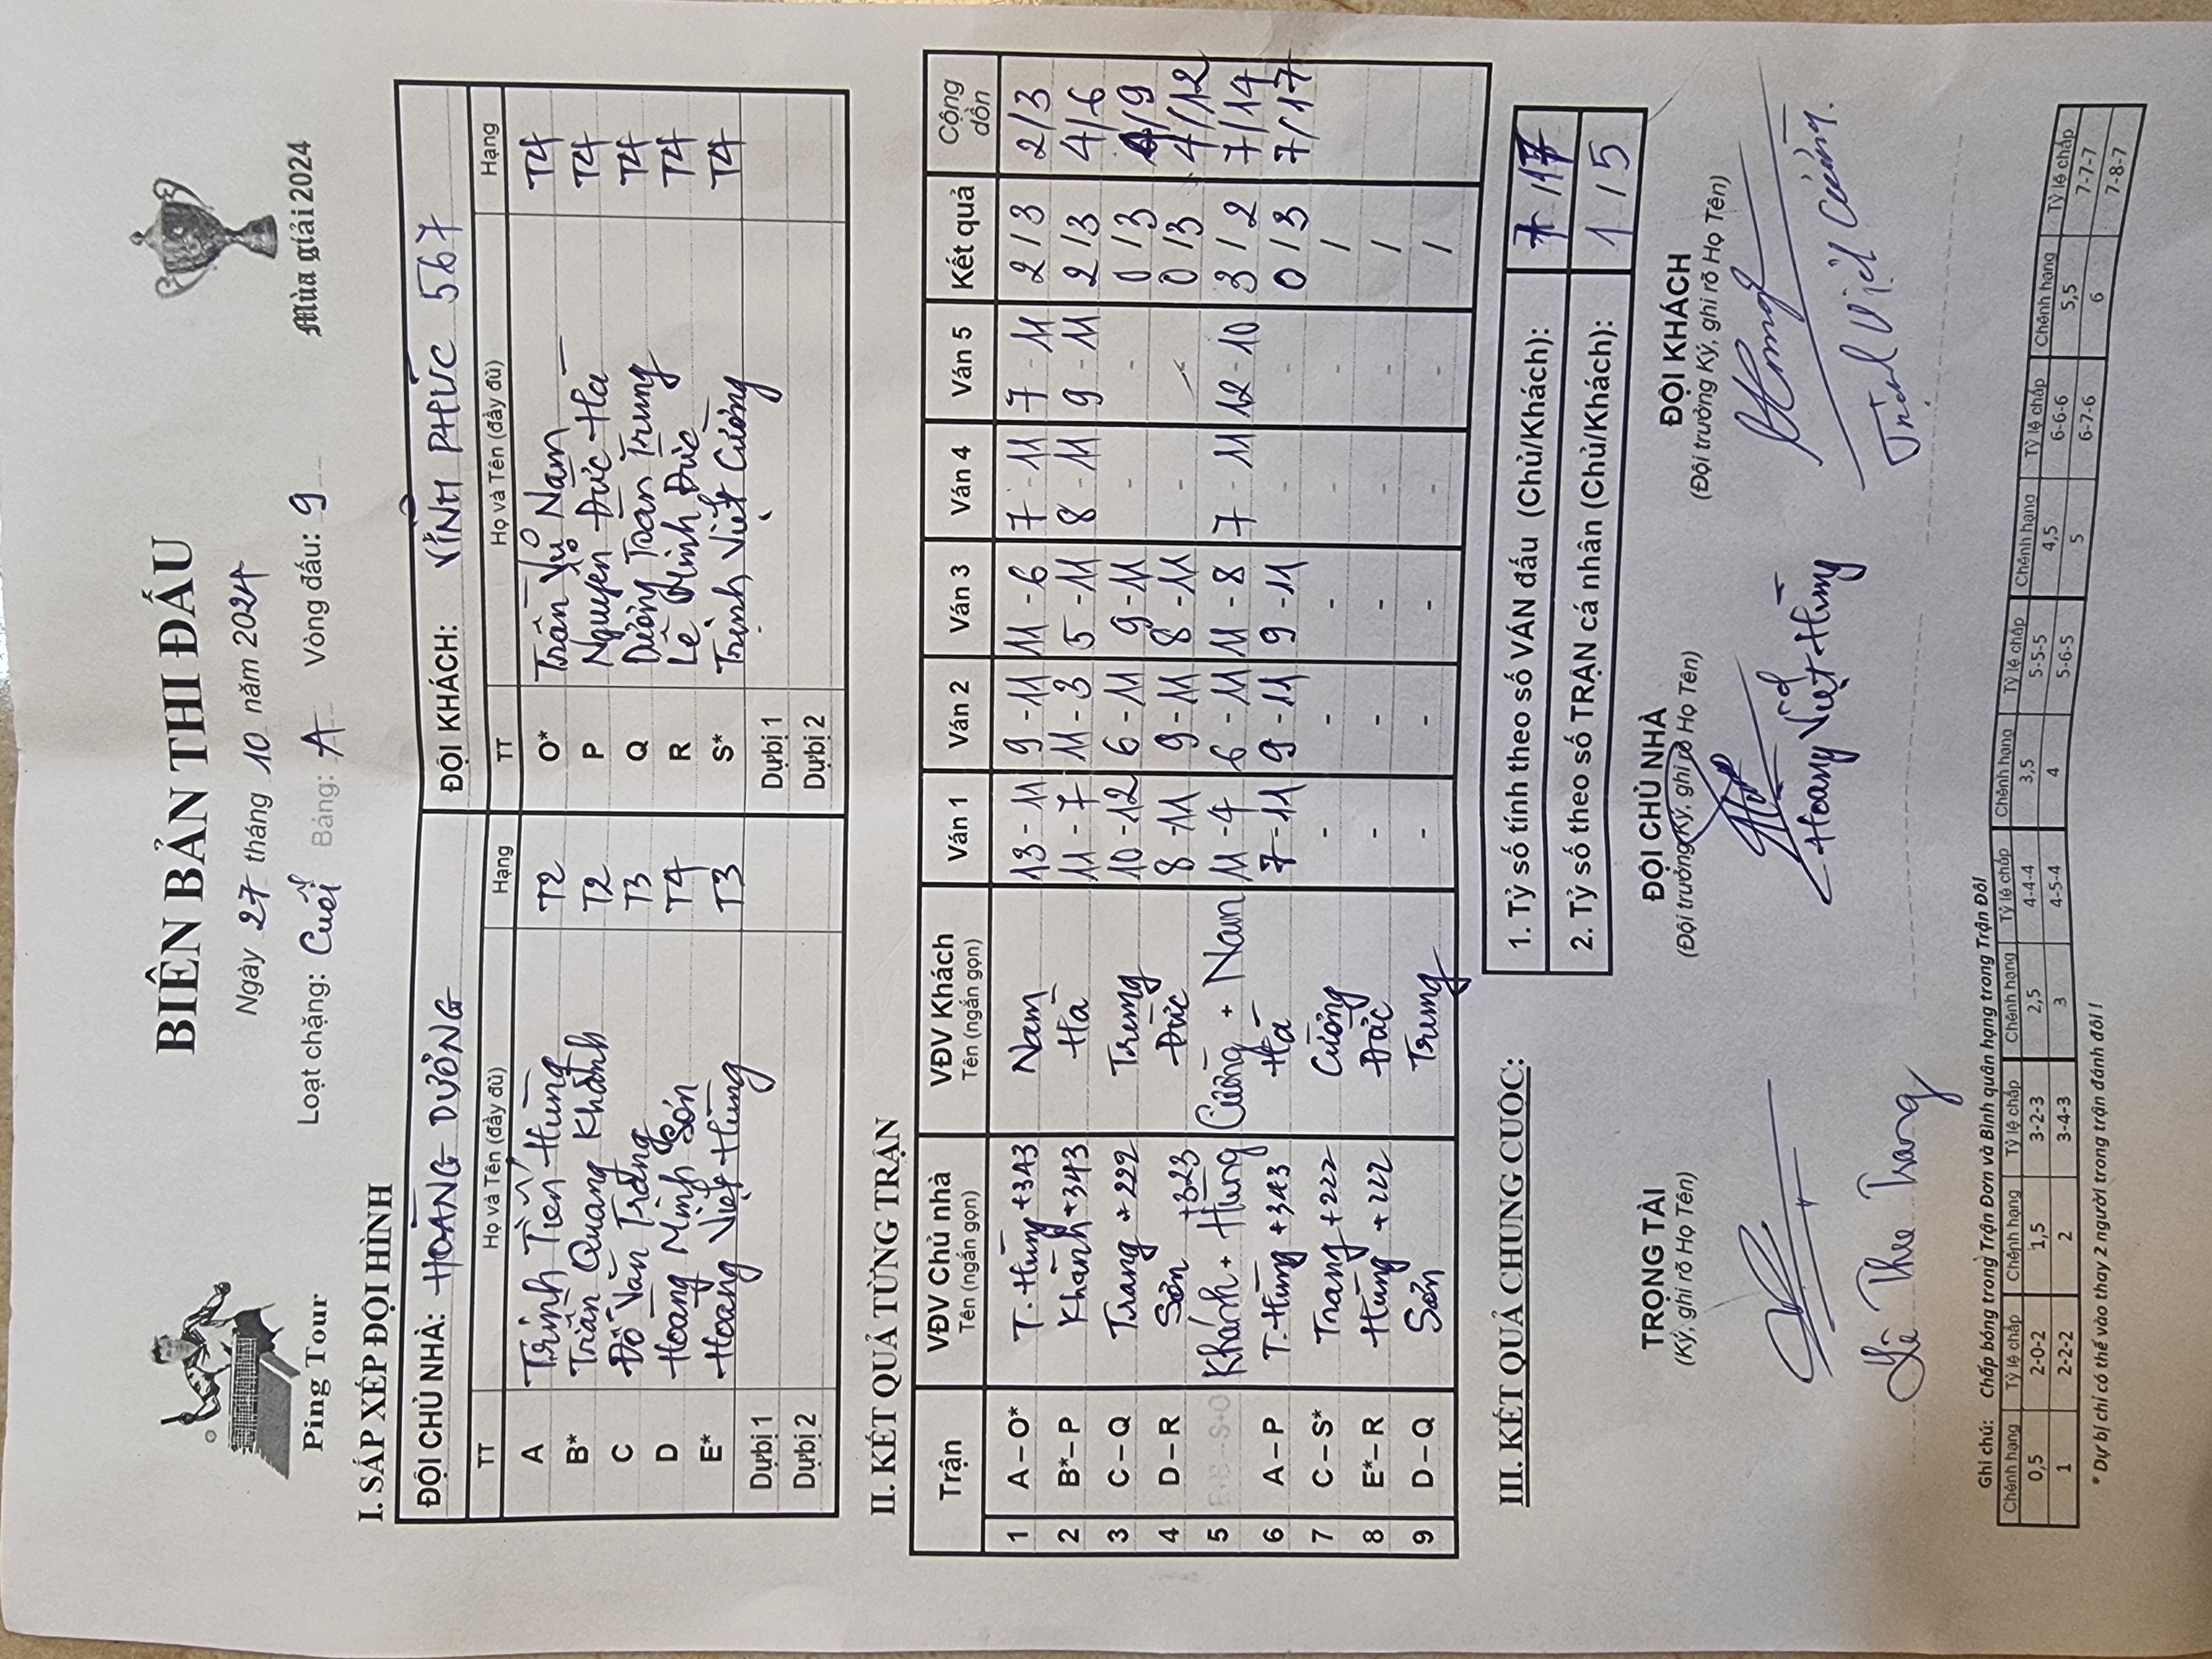 BIÊN BẢN THI ĐẤU
Ngày 27 tháng 10 năm 2024
Loạt chặng: Cuối Bảng: A Vòng đấu: 9
Ping Tour
Mùa giải 2024
I. SẮP XẾP ĐỘI HÌNH
ĐỘI CHỦ NHÀ: HOÀNG DƯƠNG ĐỘI KHÁCH: VĨNH PHÚC 567
TT Họ và Tên (đầy đủ) Hạng TT Họ và Tên (đầy đủ) Hạng
A Trịnh Tiến Hùng T2 O* Trần Vũ Nam T4
B* Trần Quang Khánh T2 P Nguyễn Đức Hà T4
C Đỗ Văn Trang T3 Q Dương Toàn Trung T4
D Hoàng Minh Sơn T4 R Lê Minh Đức T4
E* Hoàng Việt Hùng T3 S* Trịnh Việt Cường T4
Dự bị 1 Dự bị 1
Dự bị 2 Dự bị 2
II. KẾT QUẢ TỪNG TRẬN
Trận VĐV Chủ nhà Tên (ngắn gọn) VĐV Khách Tên (ngắn gọn) Ván 1 Ván 2 Ván 3 Ván 4 Ván 5 Kết quả Cộng dồn
1 A – O* T. Hùng +343 Nam 13 - 11 9 - 11 11 - 6 7 - 11 7 - 11 2 / 3 2/3
2 B* – P Khánh +343 Hà 11 - 7 11 - 3 5 - 11 8 - 11 9 - 11 2 / 3 4/6
3 C – Q Trang +222 Trung 10 - 12 6 - 11 9 - 11 - - 0 / 3 4/9
4 D – R Sơn Đức 8 - 11 9 - 11 8 - 11 - - 0 / 3 4/12
5 E+B – S+O Khánh + Hùng +323 Cường + Nam 11 - 4 6 - 11 11 - 8 7 - 11 12 - 10 3 / 2 7/14
6 A – P T. Hùng +343 Hà 7 - 11 9 - 11 9 - 11 - - 0 / 3 7/17
7 C – S* Trang +222 Cường - - - - - /
8 E* – R Hùng +222 Đức - - - - - /
9 D – Q Sơn Trung - - - - - /
III. KẾT QUẢ CHUNG CUỘC:
1. Tỷ số tính theo số VÁN đấu (Chủ/Khách): 7 / 17
2. Tỷ số theo số TRẬN cá nhân (Chủ/Khách): 1 / 5
TRỌNG TÀI ĐỘI CHỦ NHÀ ĐỘI KHÁCH
(Ký, ghi rõ Họ Tên) (Đội trưởng Ký, ghi rõ Họ Tên) (Đội trưởng Ký, ghi rõ Họ Tên)
Lê Thu Trang Hoàng Việt Hùng Trịnh Việt Cường
Ghi chú: Chấp bóng trong Trận Đơn và Bình quân hạng trong Trận Đôi
Chênh hạng Tỷ lệ chấp Chênh hạng Tỷ lệ chấp Chênh hạng Tỷ lệ chấp Chênh hạng Tỷ lệ chấp Chênh hạng Tỷ lệ chấp Chênh hạng Tỷ lệ chấp
0,5 2-0-2 1,5 3-2-3 2,5 4-4-4 3,5 5-5-5 4,5 6-6-6 5,5 7-7-7
1 2-2-2 2 3-4-3 3 4-5-4 4 5-6-5 5 6-7-6 6 7-8-7
* Dự bị chỉ có thể vào thay 2 người trong trận đánh đôi !